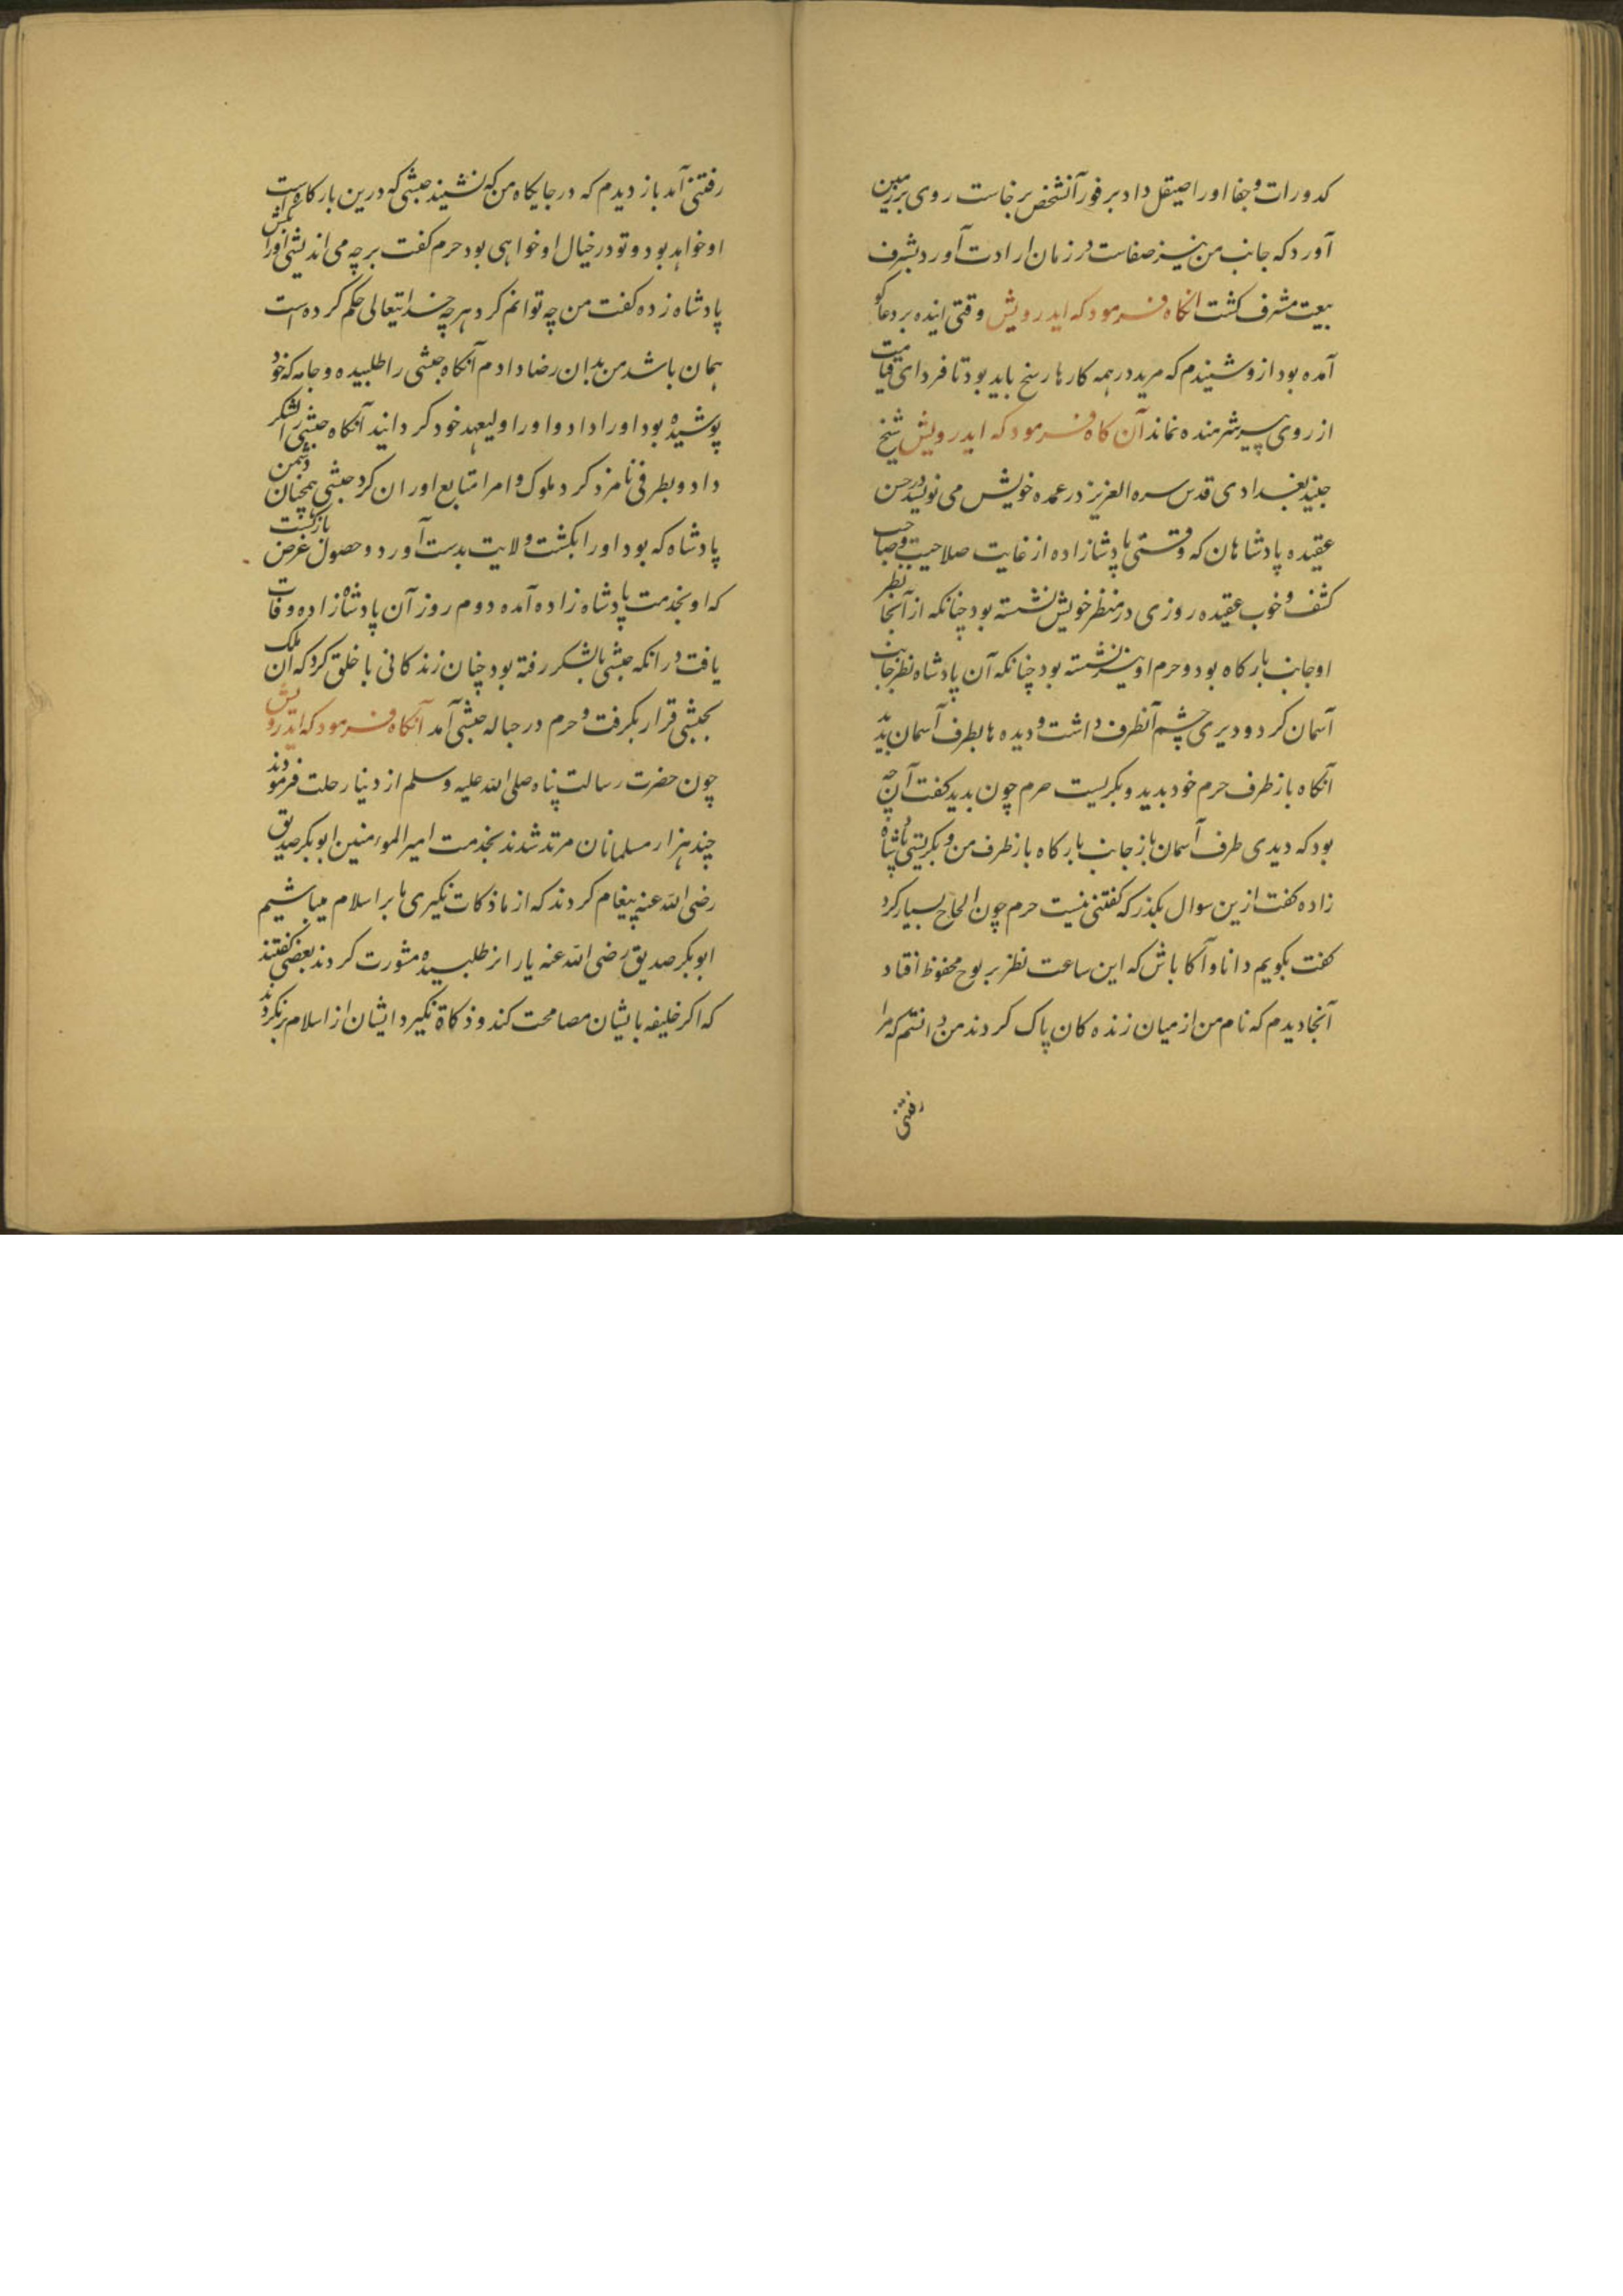 کدورات و جفا اورا صیقل داد بر فور آنشخص برخاست روی بر زمین
آورد که جانب من نیز صفاست در زمان ارادت آورد بشرف
بیعت مشرف کشت انکاه فرمود که ایدرویش وقتی اینده بر دعا کو
آمده بود ازو شنیدم که مرید در همه کارها رسخ باید بود تا فردای قیامت
از روی پیر شرمنده نماند آن کاه فرمود که ایدرویش شیخ
جنید بغدادی قدس سره العزیز در عمده خویش می نویسد در حسن
عقیده پادشاهان که وقتی پادشازاده از غایت صلاحیت و صاحب
کشف و خوب عقیده روزی در منظر خویش نشسته بود چنانکه از آنجا نظر
او جانب بارکاه بود و حرم او نیز نشسته بود چنانکه آن پادشاه نظر جانب
آسمان کرد و دیری چشم آنطرف داشت و دیده ها بطرف آسمان بدید
آنکاه باز طرف حرم خود بدید و بکریست حرم چون بدید کفت آن چه
بود که دیدی طرف آسمان باز جانب بارکاه باز طرف من و بکریستی پادشاه
زاده کفت ازین سوال بکذر که کفتنی نیست حرم چون الحاح بسیار کرد
کفت بکویم دانا و آکا باش که این ساعت نظر بر لوح محفوظ افتاد
آنجا دیدم که نام من از میان زنده کان پاک کردند من دانستم که مرا
رفتنی
رفتنی آمد باز دیدم که در جایکاه من که نشیند حبشی که درین بارکاه است
او خواهد بود و تو در خیال او خواهی بود حرم کفت بر چه می اندیشی اورا
پادشاه زده کفت من چه توانم کرد هر چه خدایتعالی حکم کرده است
همان باشد من بدان رضا دادم آنکاه حبشی را طلبیده و جامه که خود
پوشیده بود اورا داد و اورا ولیعهد خود کردانید آنکاه حبشی را لشکر
داد و بطرفی نامزد کرد و ملوک و امرا متابع اوران کرد حبشی همچنان دشمن
پادشاه که بود اورا بکشت و لایت بدست آورد و حصول غرض بازکشت
که او بخدمت پادشاه زاده آمده دوم روز آن پادشاه زاده وفات
یافت در انکه حبشی بلشکر رفته بود چنان زندکانی با خلق کرد که آن ملک
بحبشی قرار بکرفت و حرم در حباله حبشی آمد آنکاه فرمود که ایدرویش
چون حضرت رسالت پناه صلی الله علیه وسلم از دنیا رحلت فرمودند
چند هزار مسلمانان مرتد شدند بخدمت امیر المومنین ابوبکر صدیق
رضی الله عنه پیغام کردند که از ما ذکات نکیری ما بر اسلام میباشیم
ابوبکر صدیق رضی الله عنه یارانر طلبیده مشورت کردند بعضی کفتند
که اکر خلیفه بایشان مصامحت کند و ذکاة نکیرد ایشان از اسلام برنکردند